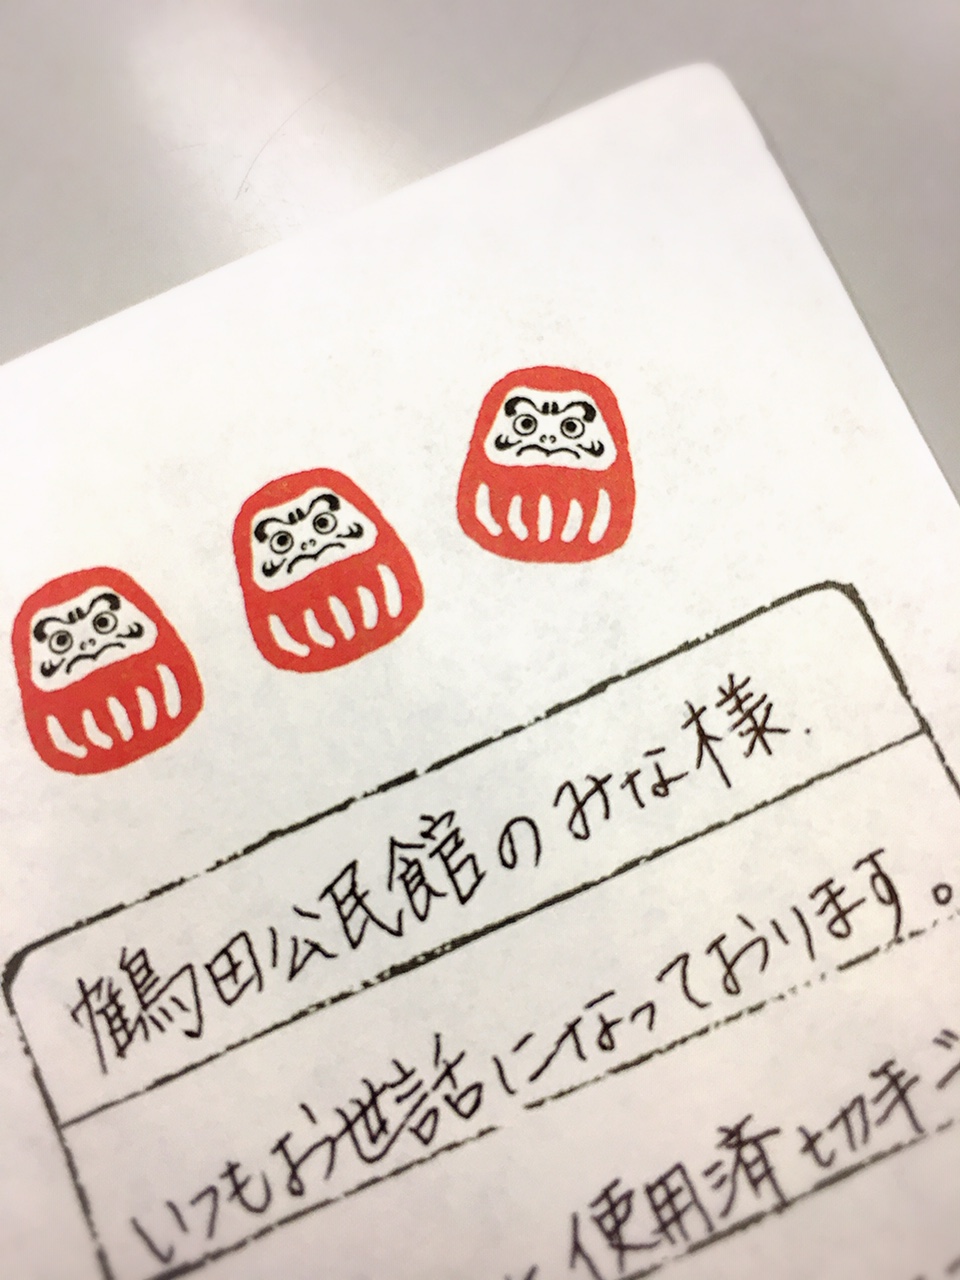 鶴田公民館のみな様.
いつもお世話になっております。
使用済切手